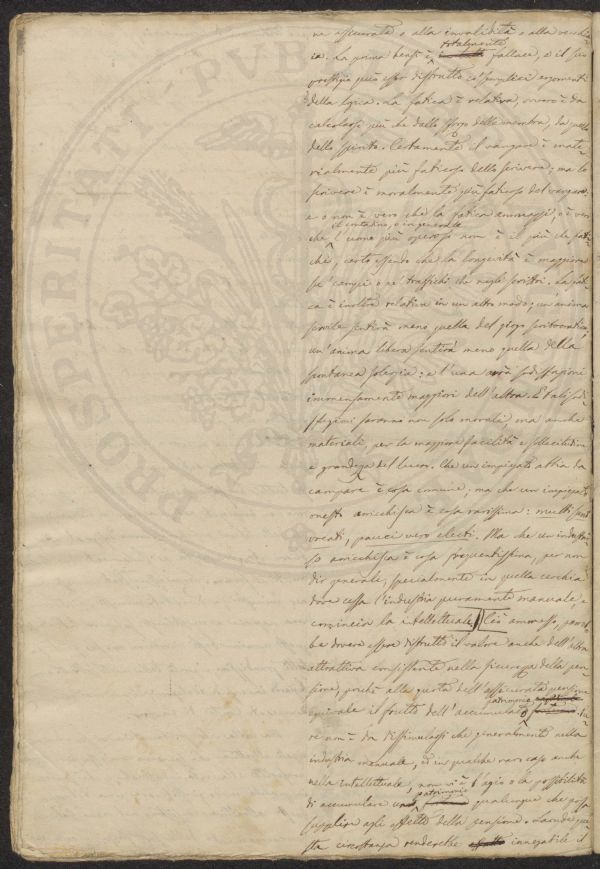 PROSPERITATI PUBL
ne assicurata o alla invalidità o alla vecchi
totalmente
ia. La prima bensì è fallace, e il suo
prestigio può esser distrutto co' semplici argomenti
della logica. La fatica è relativa, ovvero è da
calcolarsi più che dallo sforzo delle membra, da quello
dello spirito. Certamente il vangare è mate-
rialmente più faticoso dello scrivere; ma lo
scrivere è moralmente più faticoso del vangare.
e o non è vero che la fatica ammazzi, o è vero
il contadino, o in generale
che l'uomo più operoso non è il più da fati-
che, certo essendo che la longevità è maggiore
pe' campi o ne' traffichi che negli scrittoi. La fati-
ca è inoltre relativa in un altro modo; un'anima
servile sentirà meno quella del giogo scritocratico,
un'anima libera sentirà meno quella della
spontanea solerzia: e l'una avrà sodisfazioni
immensamente maggiori dell'altra. E tali sodi-
sfazioni saranno non solo morali, ma anche
materiali, per la maggiore facilità e sollecitudine
e grandezza del lucro. Che un impiegato abbia da
campare è cosa comune; ma che un impiegato
onesto arricchisca è cosa rarissima: multi sunt
vocati, pauci vero electi. Ma che un industrio-
so arricchisca è cosa frequentissima, per non
dir generale, specialmente in quella cerchia
dove cessa l'industria puramente manuale, e
comincia la intellettuale. Ciò ammesso, pareb
be dovere essere distrutto il valore anche dell'altra
attrattiva consistente nella sicurezza della pen-
sione, poiché alla quota dell'assicurata pensione
patrimonio
equivale il frutto dell'accumulato
re non è da dissimularsi che generalmente nella
industria manuale, ed in qualche raro caso anche
nella intellettuale, non vi è l'agio o la possibilità
patrimonio
di accumulare un qualunque che possa
supplire agli effetti della pensione. Laonde que-
sta circostanza renderebbe innegabile il